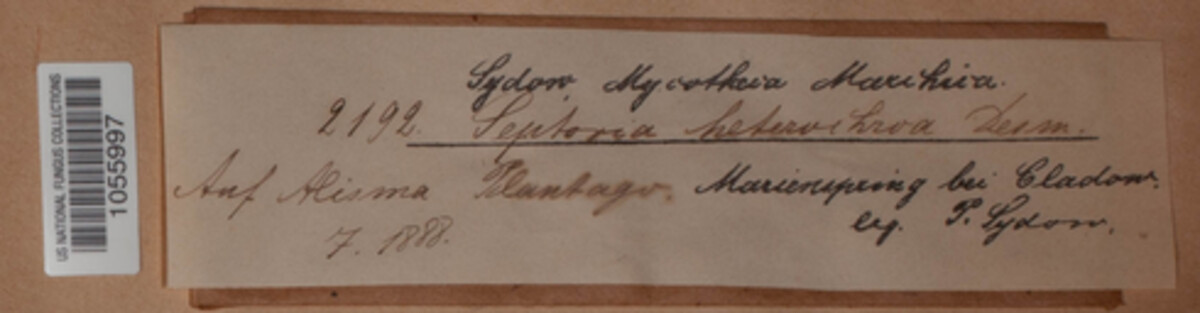 US NATIONAL FUNGUS COLLECTIONS
1055997
Sydow, Mycotheca Marchica.
2192. Septoria heterochroa Desm.
Auf Alisma Plantago. Marienspring bei Cladow.
7. 1888. leg. P. Sydow.